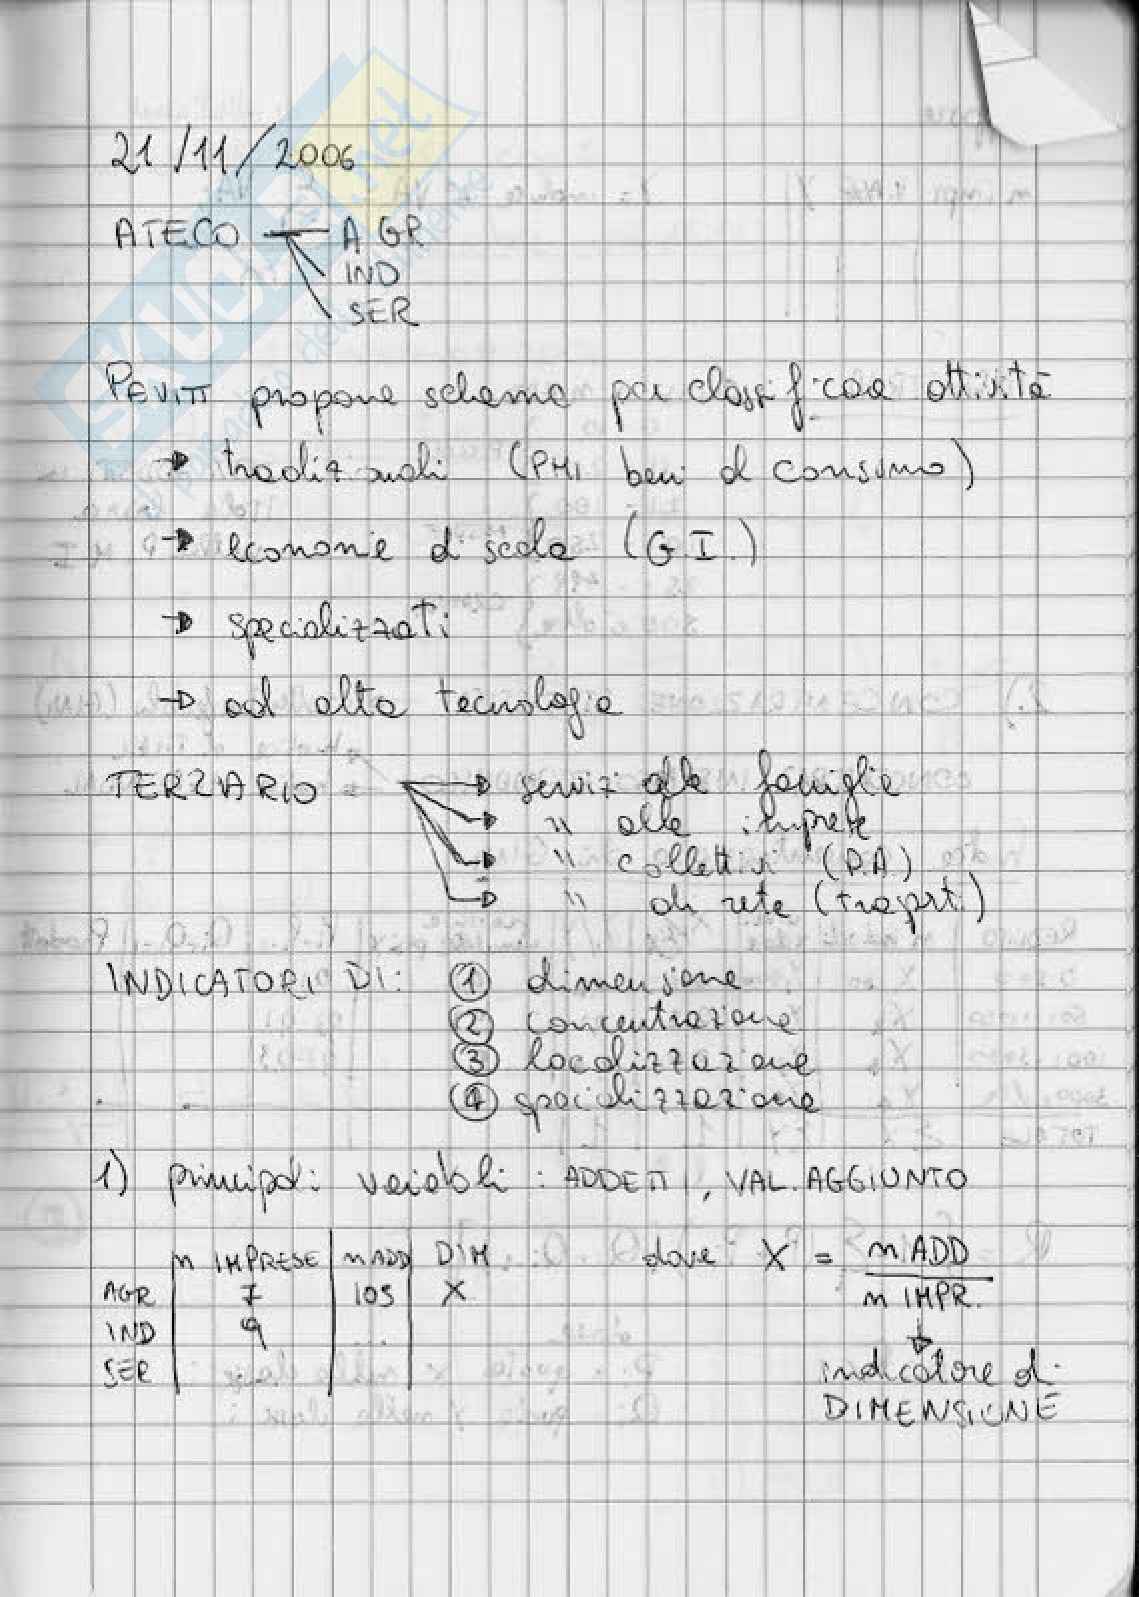 21/11/2006
ATECO AGR
IND
SER
PAVITT propone schema per classificare attività
→ tradizionali (PMI, beni di consumo)
→ economie di scala (G.I.)
→ specializzati
→ ad alta tecnologia
TERZIARIO → servizi alle famiglie
→ " alle imprese
→ " collettivi (P.A.)
→ " di rete (trasporti)
INDICATORI DI: ① dimensione
② concentrazione
③ localizzazione
④ specializzazione
1) principali variabili: ADDETTI, VAL. AGGIUNTO
n IMPRESE n ADD DIM dove X = n ADD
AGR 7 105 X n IMPR.
IND 9 ...
SER indicatore di
DIMENSIONE
SKUOLA.net